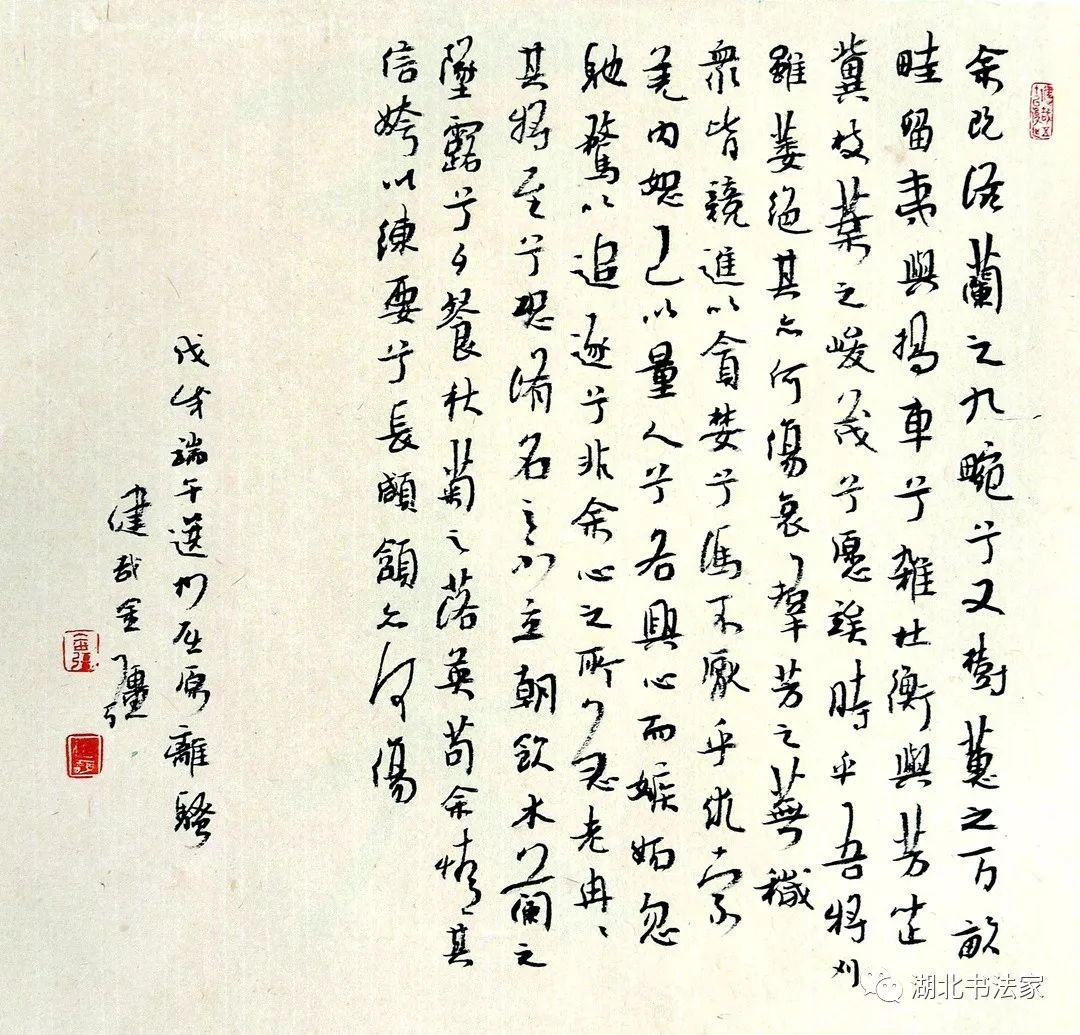 余既滋蘭之九畹兮又樹蕙之百畝
畦留夷與揭車兮雜杜衡與芳芷
冀枝葉之峻茂兮愿竢時乎吾將刈
雖萎絕其亦何傷哀羣芳之蕪穢
眾皆競進以貪婪兮馮不厭乎求索
羌內恕己以量人兮各興心而嫉妬忽
馳騖以追逐兮非余心之所急老冉〻
其將至兮恐脩名之不立朝飲木蘭之
墜露兮夕餐秋菊之落英苟余情其
信姱以練要兮長顑頷亦何傷
戊戌端午選抄屈原離騷
健哉金疆
湖北书法家